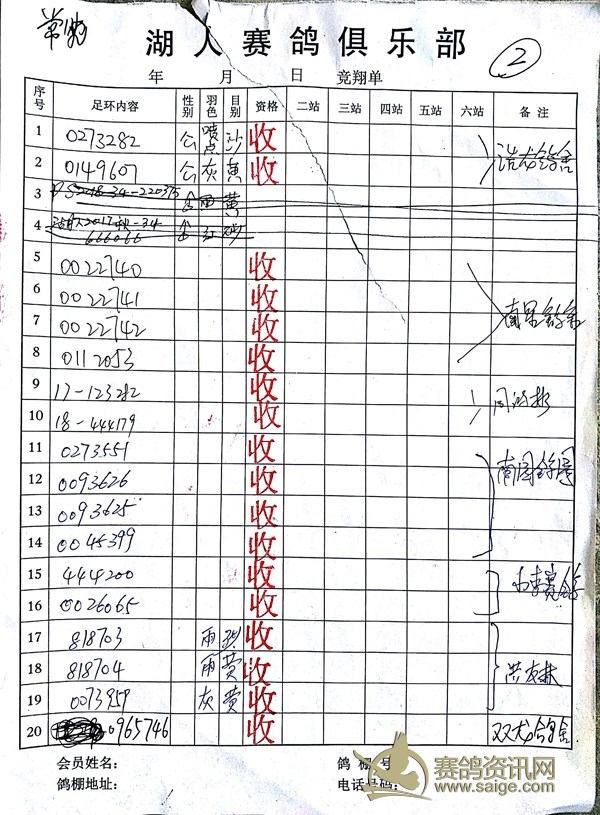 湖人赛鸽俱乐部
2
年 月 日 竞翔单
序号 足环内容 性别 羽色 目别 资格 二站 三站 四站 五站 六站 备注
1 0273282 公 喷点 沙 收
2 0149607 公 灰 黄 收
3 18-34-220375 雨 黄
4 2017 34 666066 红 沙
5 0022740 收
6 0022741 收
7 0022742 收
8 0112053 收
9 17-123212 收
10 18-444179 收
11 0273551 收
12 0093626 收
13 0093625 收
14 0045399 收
15 444200 收
16 0026065 收
17 818703 雨 收
18 818704 雨 黄 收
19 0073959 灰 黄 收
20 0965746 收 双龙鸽舍
会员姓名: 鸽棚号
鸽棚地址: 电话号码:
赛鸽资讯网
www.saige.com